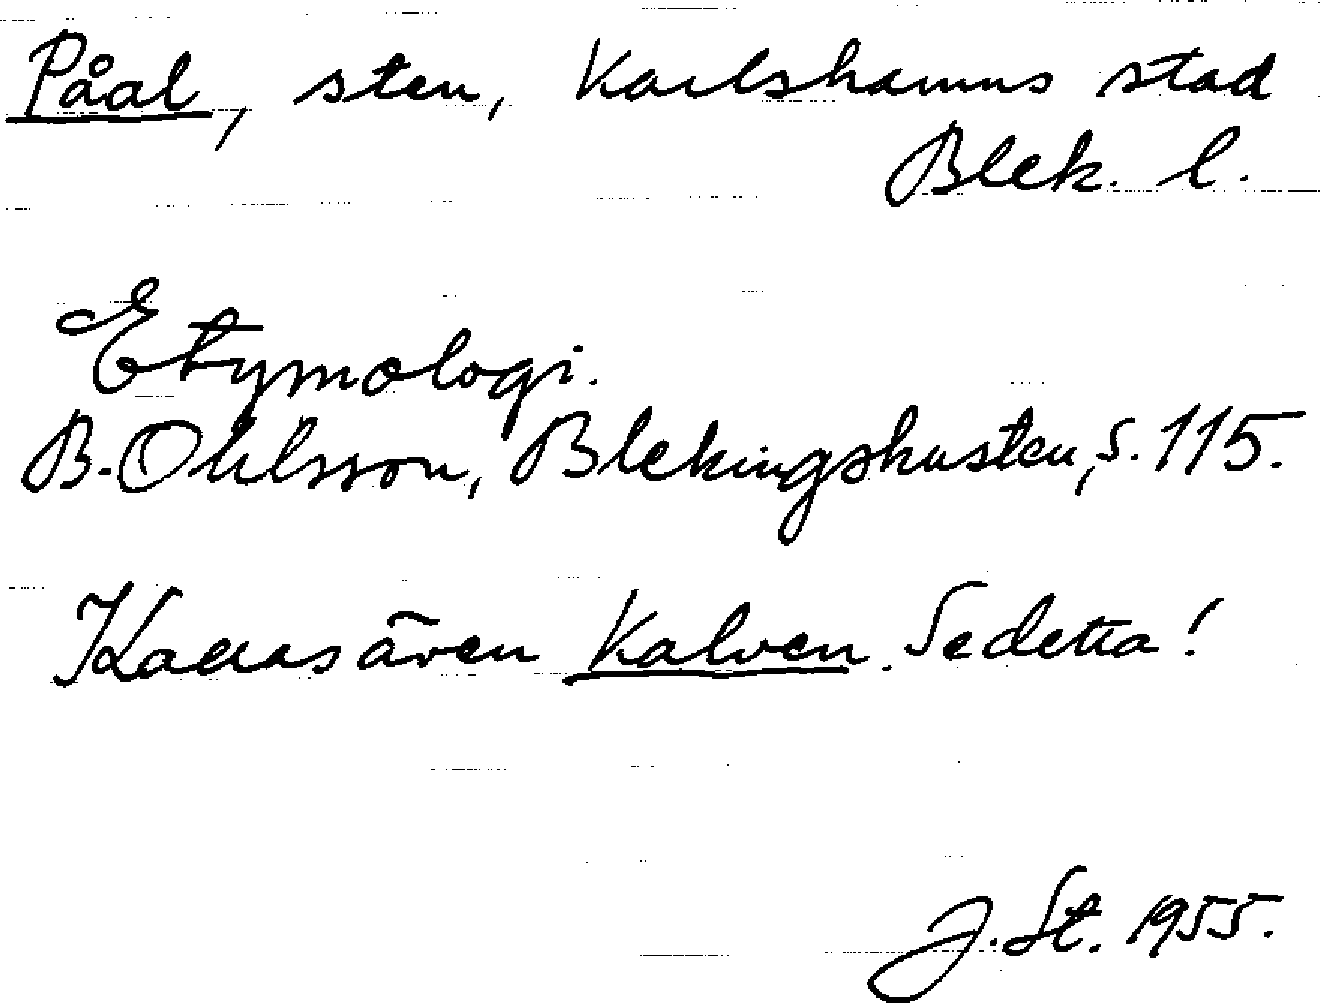 Påal, sten, Karlshamns stad
Blek. l.
Etymologi.
B. Ohlsson, Blekingskusten, s. 115.
Kallas även Kalven. Se detta!
J. St. 1955.